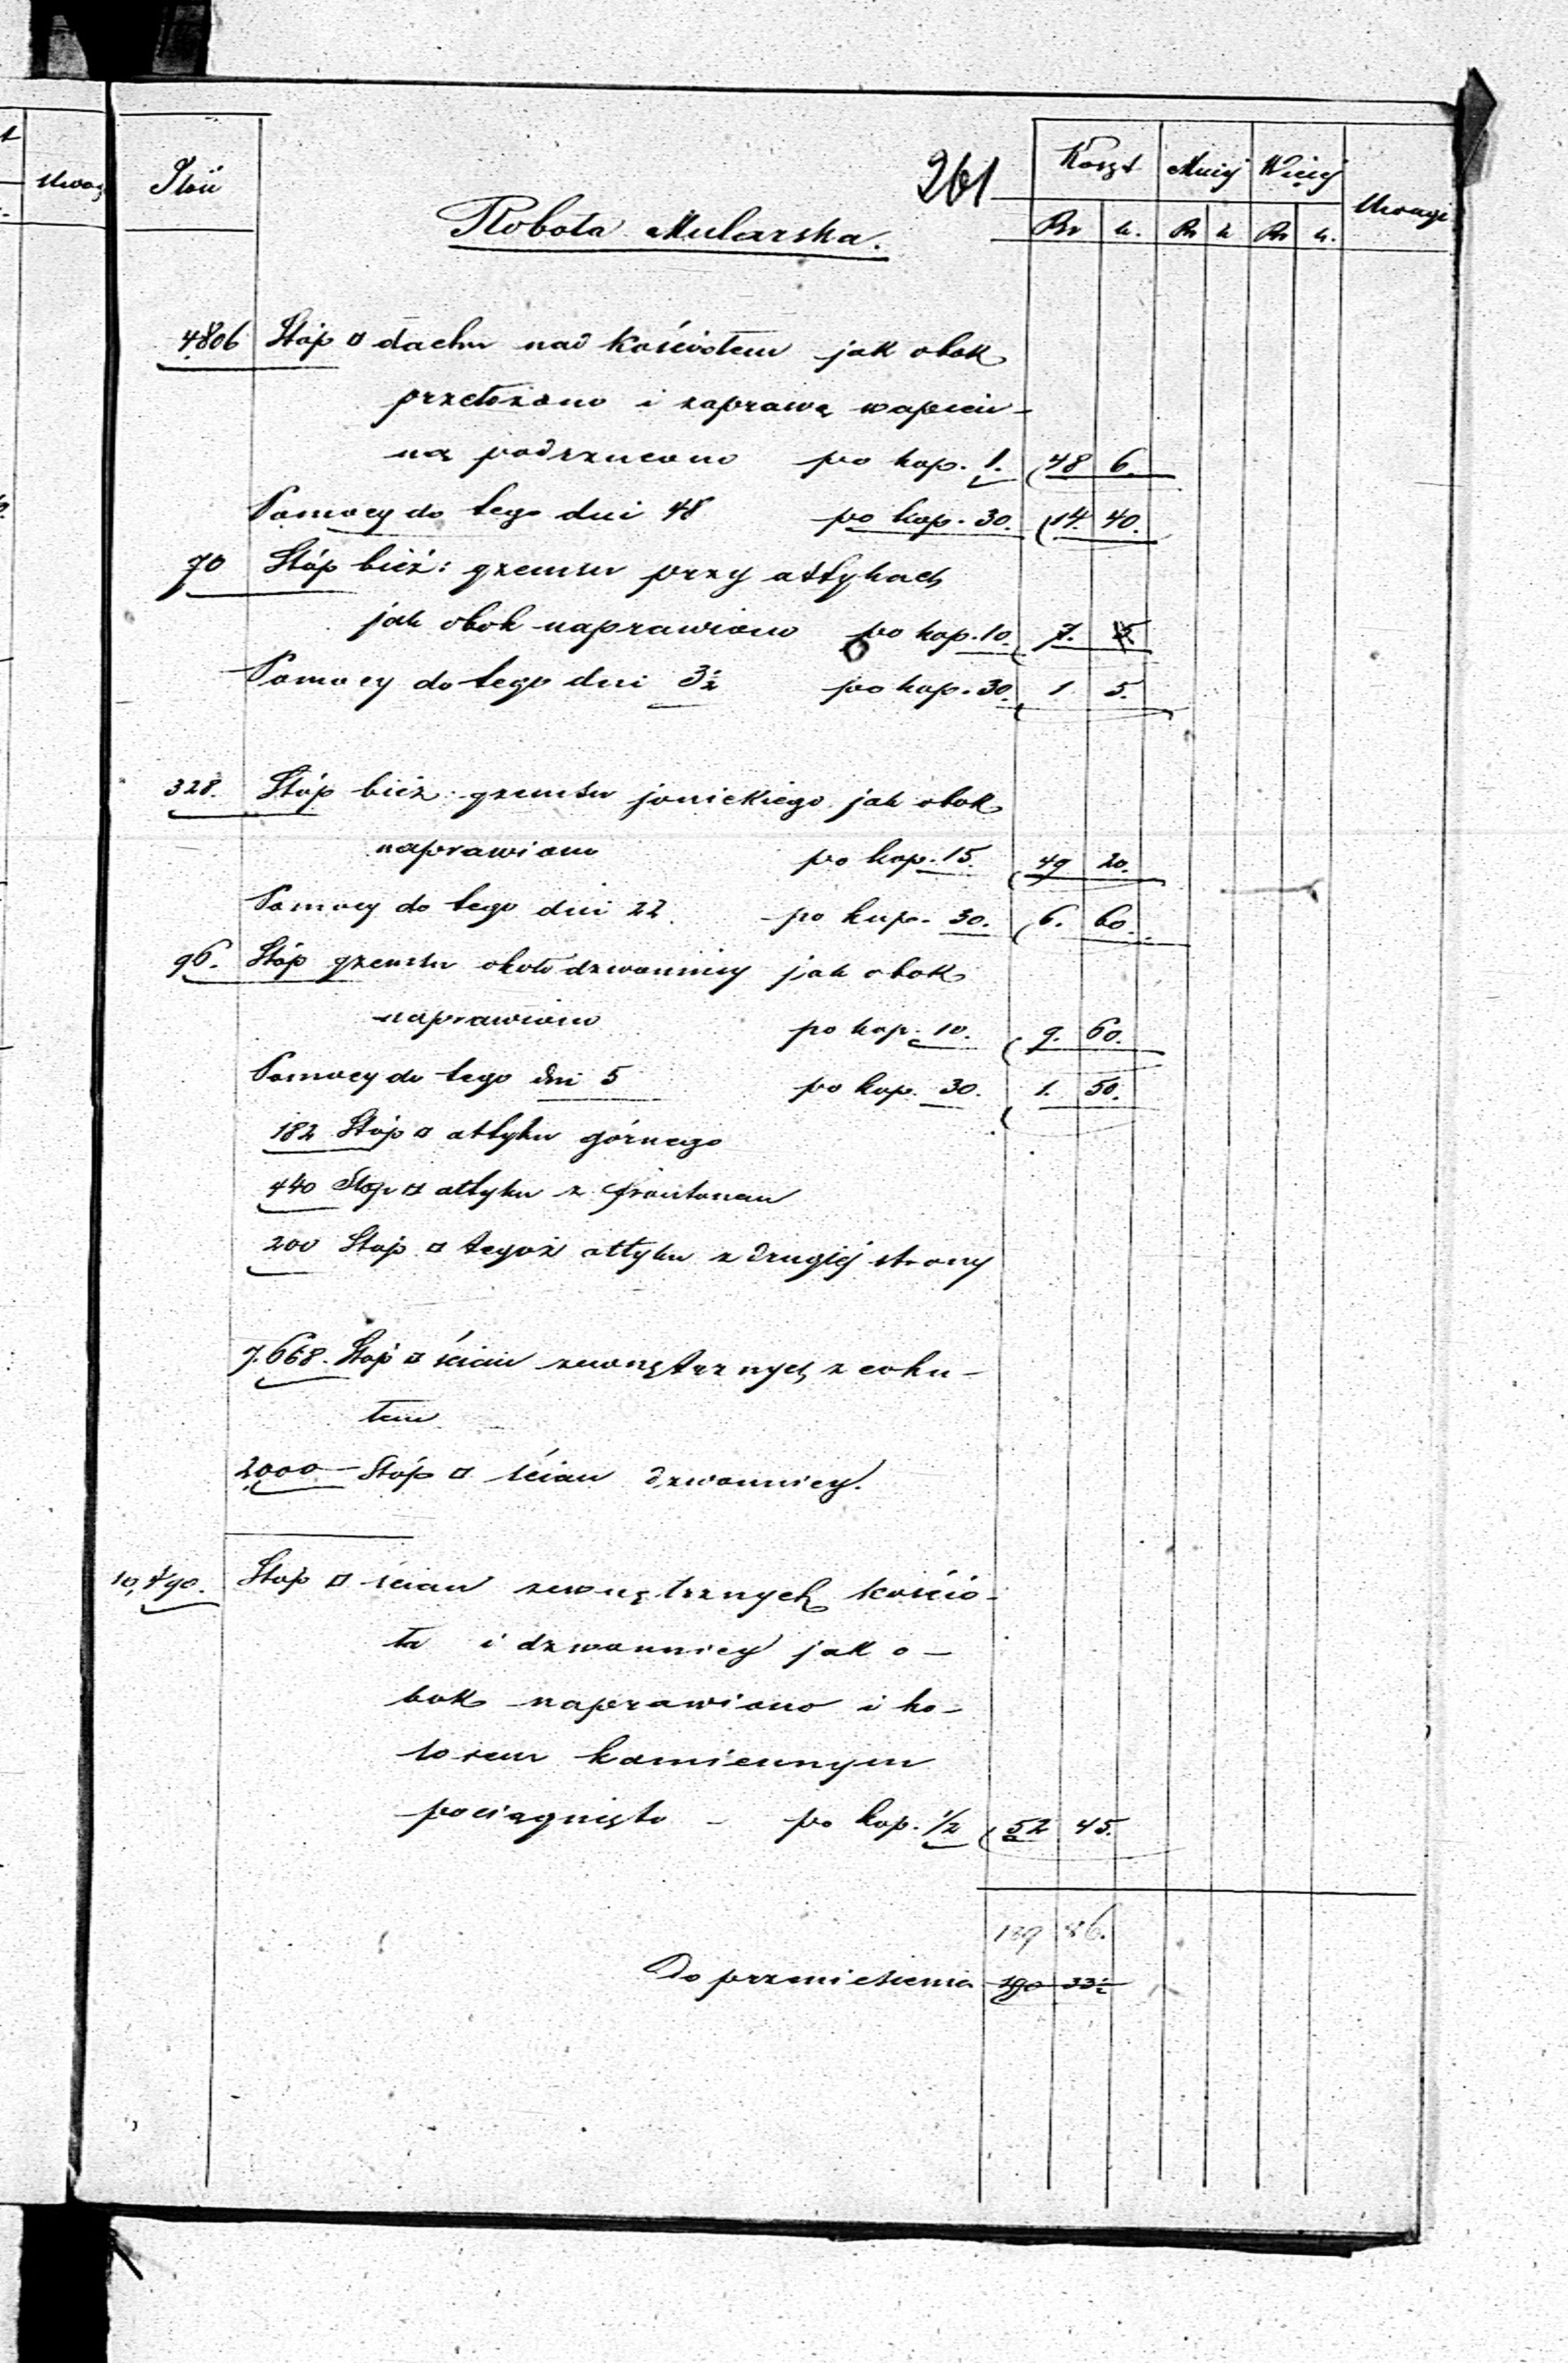 t Uwag
Ilość 261 Koszt Mniej Więcej Uwagi
Robota Mularska. Rs k. Rs k Rs k.
4806 Stóp □ dachu nad kościołem jak obok
przełożono i zaprawą wapien-
ną podrzucono po kop. 1. 48 6.
Pomocy do tego dni 48 po kop. 30. 14. 40.
70 Stóp bież: gzemsu przy attykach
jak obok naprawiono po kop. 10. 7.
Pomocy do tego dni 3½ po kop. 30. 1 5.
328. Stóp bież: gzemsu jonickiego jak obok
naprawiono po kop. 15. 49 20.
Pomocy do tego dni 22. po kop. 30. 6. 60.
96. Stóp gzemsu około dzwonnicy jak obok
naprawiono po kop. 10. 9. 60.
Pomocy do tego dni 5 po kop. 30. 1. 50.
182 Stóp □ attyku górnego
440 Stóp □ attyku z frontonem
200 Stóp □ tegoż attyku z drugiej strony
7.668. Stóp □ ścian zewnętrznych z coku-
łem
2000 – Stóp □ ścian dzwonnicy.
10,490. Stóp □ ścian zewnętrznych kościo-
ła i dzwonnicy jak o-
bok naprawiono i ko-
lorem kamiennym
pociągnięto – po kop. 1/2 52 45.
189 86.
Do przeniesienia 190 33½